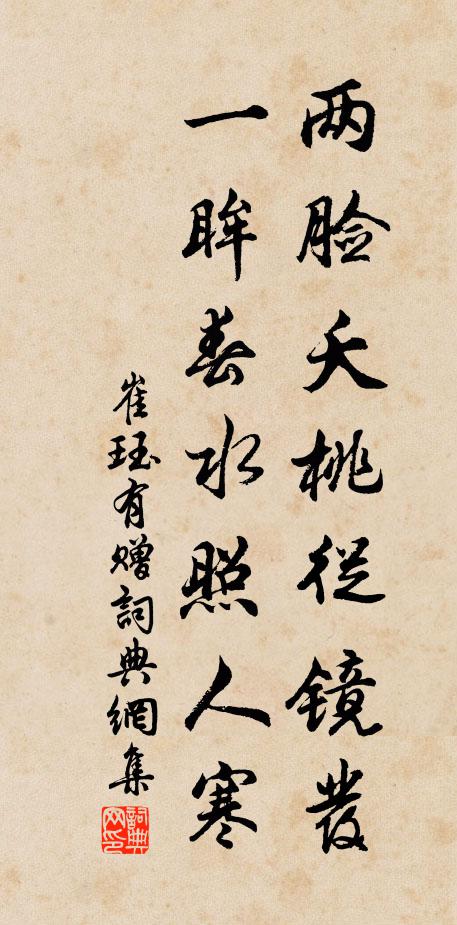 两脸夭桃从镜發
一眸春水照人寒
崔珏有赠詞典網集
詞典网印